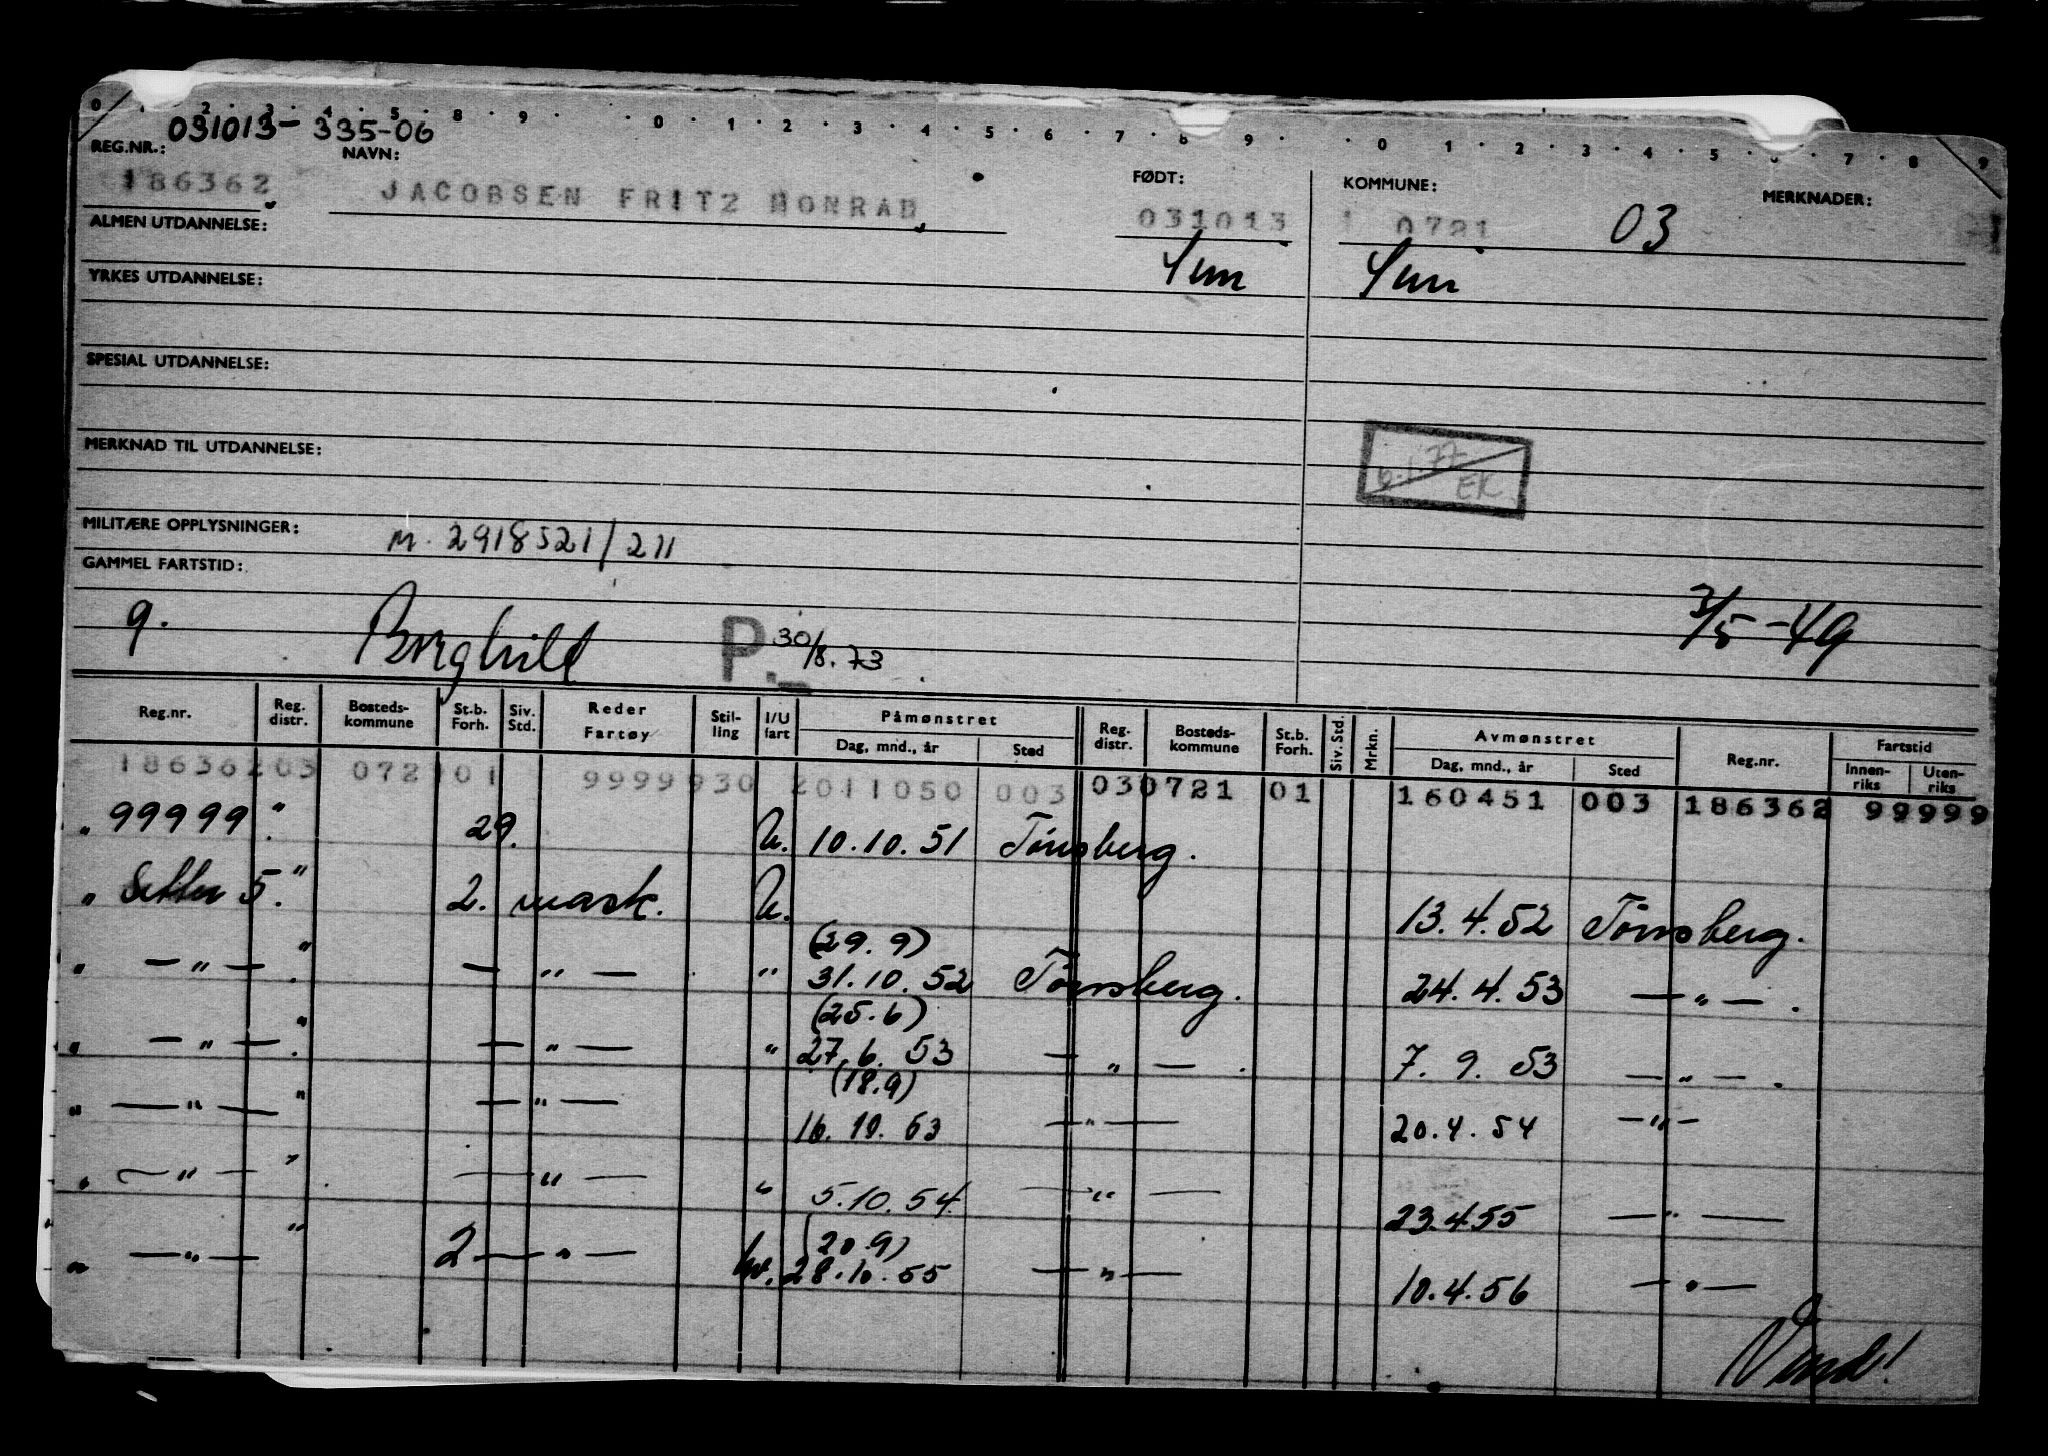 0 1 2 · 3 · 4 · 5 · 8 · 9 · · 0 · 1 · 2 · 3 · 4 · 5 · 6 · 7 · 8 · 9 · · 0 · 1 · 2 · 3 · 4 · 5 · 6 · 7 · 8 9
031013-335-06
REG.NR.: NAVN: FØDT: KOMMUNE: MERKNADER:
186362 JACOBSEN FRITZ MONRAD 031013 0721 03
ALMEN UTDANNELSE: Sem Sem
YRKES UTDANNELSE:
SPESIAL UTDANNELSE:
MERKNAD TIL UTDANNELSE:
6.1.77 EK
MILITÆRE OPPLYSNINGER: M. 2918521/211
GAMMEL FARTSTID:
9. Borghild P. 30/8.73 3/5-49
Reg.nr. Reg. distr. Bosteds-kommune St.b. Forh. Siv. Std. Reder Fartøy Stil-ling I/U fart Påmønstret Dag, mnd., år Sted Reg. distr. Bosteds-kommune St.b. Forh. Siv. Std. Mrkn. Avmønstret Dag, mnd., år Sted Reg.nr. Fartstid Innen-riks Uten-riks
186362 03 0721 01 9999930 2011050 003 03 0721 01 160451 003 186362 99999
" 99999 " 29. U. 10.10.51 Tönsberg.
" Setter 5. " 2. mask. U. 13.4.52 Tönsberg.
(29.9)
" — " — " — " — " 31.10.52 Tönsberg. 24.4.53 — " — .
(25.6)
" — " — " — " — " 27.6.53 — " — . 7.9.53 — " — .
(18.9)
" — " — " — " — 16.10.53 — " — 20.4.54 — " —
" — " — " — " — " 5.10.54 — " — 23.4.55 — " —
(20.9)
" — " — " 2 — " — 28.10.55 — " — 10.4.56 — " —
Vend!